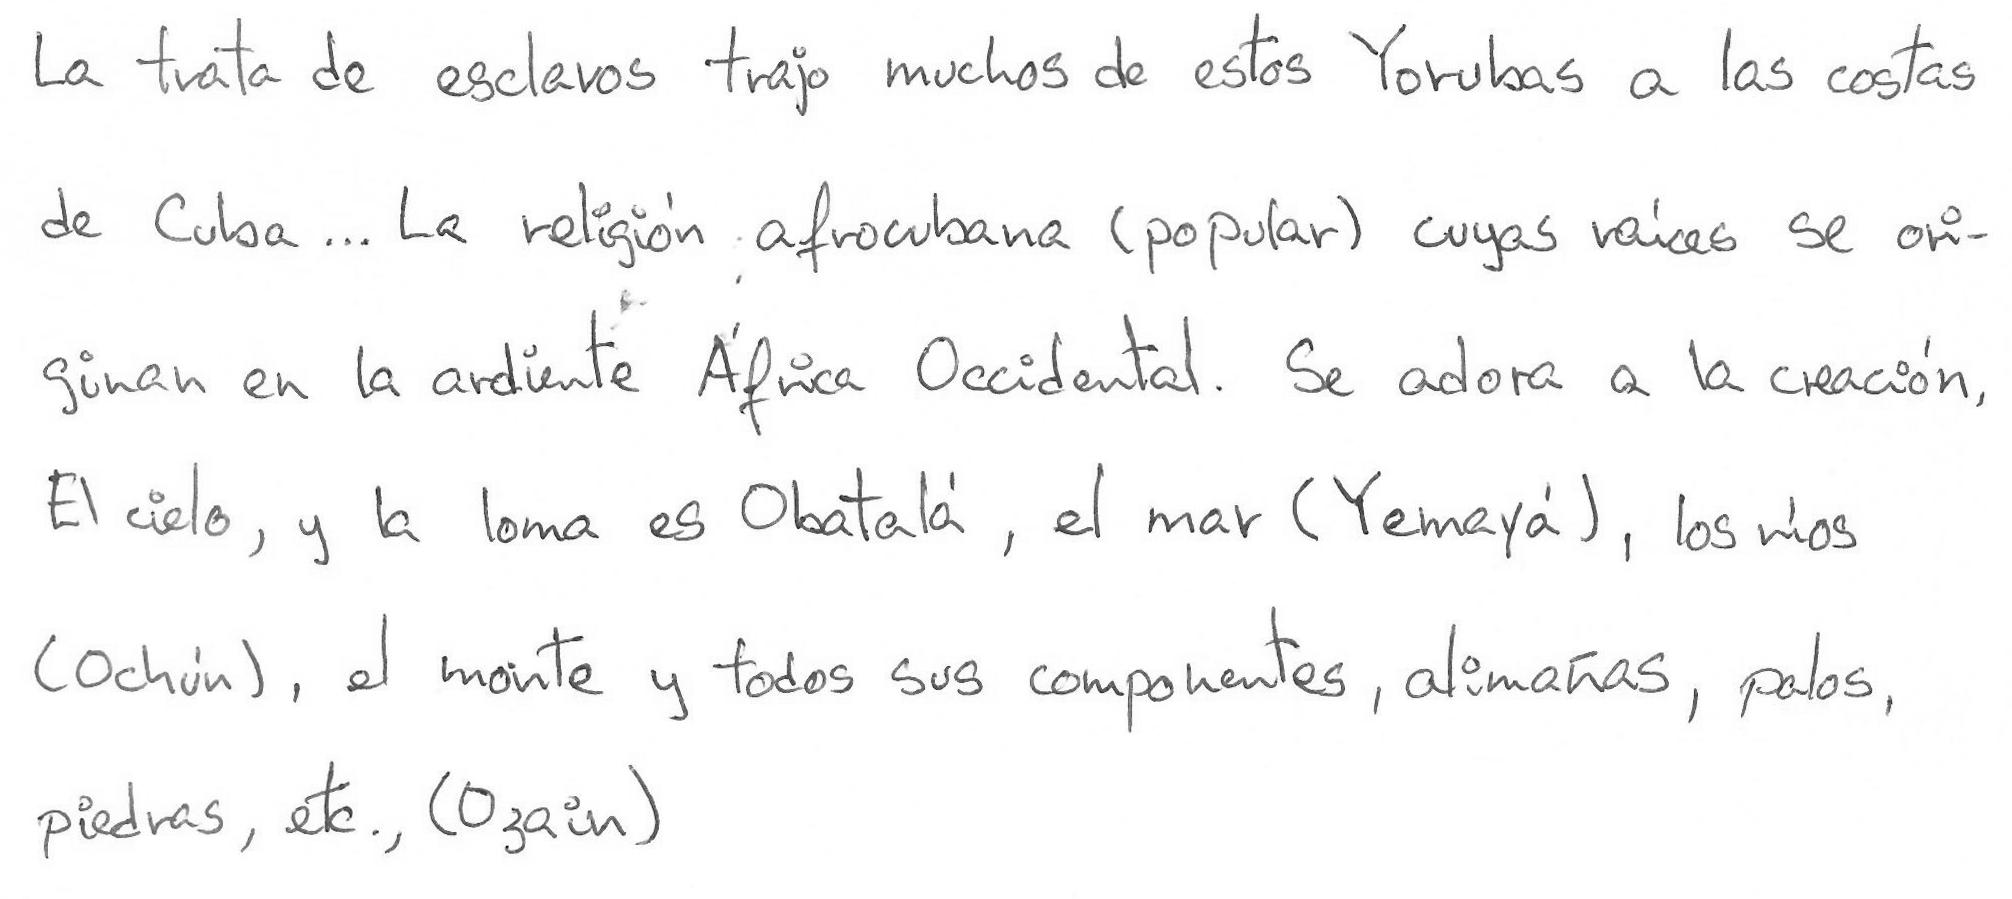 La trata de esclavos trajo muchos de estos Yorubas a las costas
de Cuba... La religión afrocubana (popular) cuyas raíces se ori-
ginan en la ardiente África Occidental. Se adora a la creación,
El cielo, y la loma es Obatalá, el mar (Yemayá), los ríos
(Ochún), el monte y todos sus componentes, alimañas, palos,
piedras, etc., (Ozain)